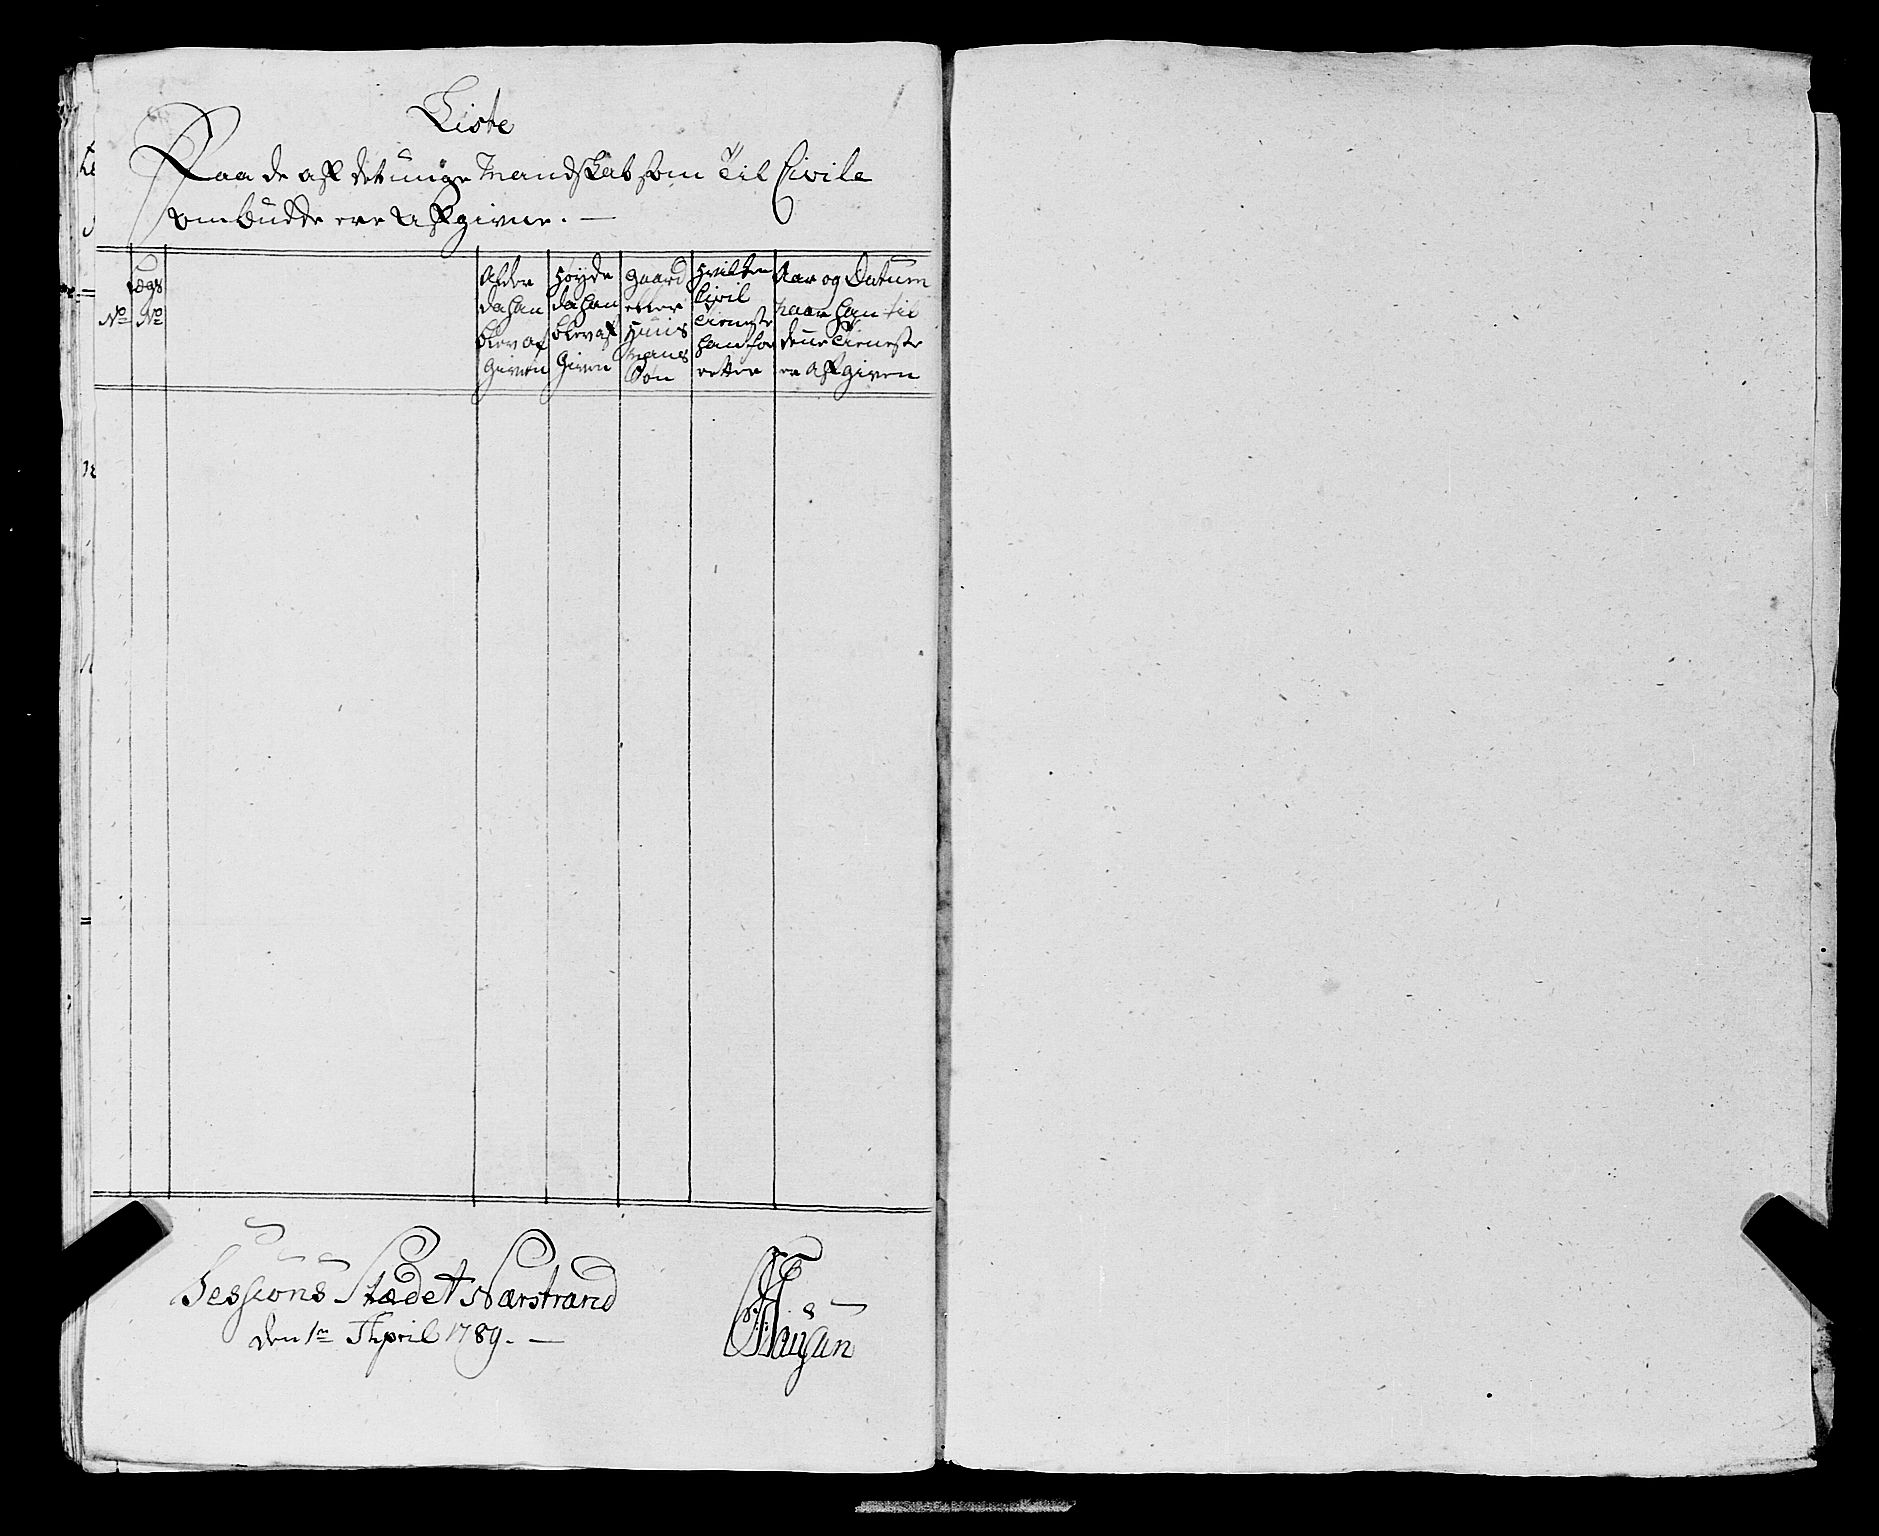 Liste
Paa de aff det unge Mandskab som til Civile
ombudde ere affgivne. —
No
Legs
No
Alder
da han
blev af
given
Høyde
da han
blev aff
Given
Gaard
eller
Huus
mans
Søn
Hvilken
Civil
Tieneste
han for
retter
Aar og Datum
naar han til
denne Tieneste
er affgiven
Sessions Stædet Nærstrand
den 1te April 1789. —